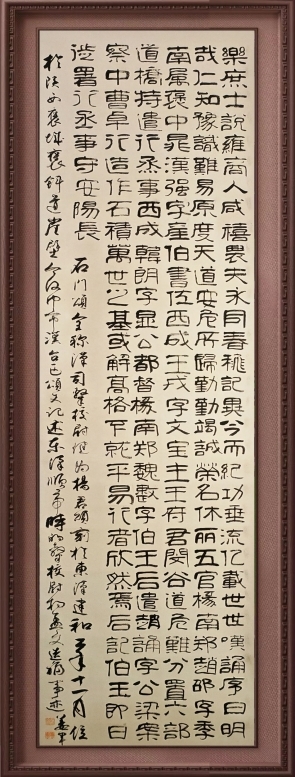 樂庶士說雍商人咸禧農夫永同春秋記異今而紀功垂流億載世世嘆誦序曰明
哉仁知豫識難易原度天道安危所歸勤勤竭誠榮名休丽五官掾南鄭趙邵字季
南屬褒中晁漢强字產伯書佐西成王戒字文宝主王府君閔谷道危難分置六部
道橋特遣行丞事西成韓朗字顯公都督掾南鄭魏整字伯王后遣趙誦字公梁案
察中曹卓行造作石積萬世之基或解高格下就平易行者欣然焉后記伯王即日
徙署行丞事守安陽長 石门頌全称漢司隸校尉犍为楊君頌刻於東漢建和二年十一月位
於陕西褒城褒斜道崖壁今 漢台 頌文记述东漢順帝時 校尉楊孟文 事迹